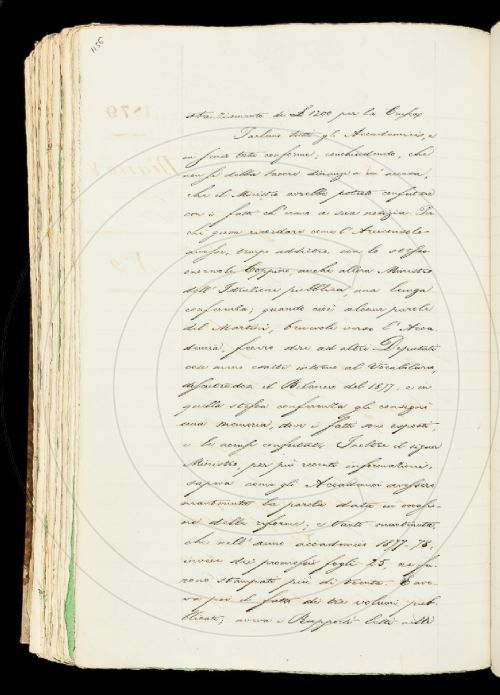 1156
stanziamento di L. 1200 per la Crusca
Parlano tutti gli Accademici, e
in senso tutto conforme, conchiudendo, che
non si debba tacere dinanzi a un'accusa,
che il Ministro avrebbe potuto confutare
con i fatti ch'erano a sua notizia. Per
chè giova ricordare come l'Arciconsolo
avesse, tempo addietro, con lo stesso
onorevole Coppino, anche allora Ministro
dell'Istruzione pubblica, una lunga
conferenza; quando cioè alcune parole
del Martini, benevoli verso l'Acca
demia, fecero dire ad altro Deputato
cose meno esatte intorno al Vocabolario,
discutendosi il Bilancio del 1877. e in
quella stessa conferenza gli consegnò
una memoria, dove i fatti sono esposti,
e le accuse confutate. Inoltre il signor
Ministro, per più recenti informazioni,
sapeva come gli Accademici avessero
mantenuto la parola data in occasio
ne della riforma; e tanto mantenuta,
che nell'anno accademico 1877-78,
invece dei promessi fogli 25, ne fu
rono stampati più di trenta. E ave
va poi il fatto di tre volumi pub
blicati, aveva i Rapporti letti nelle